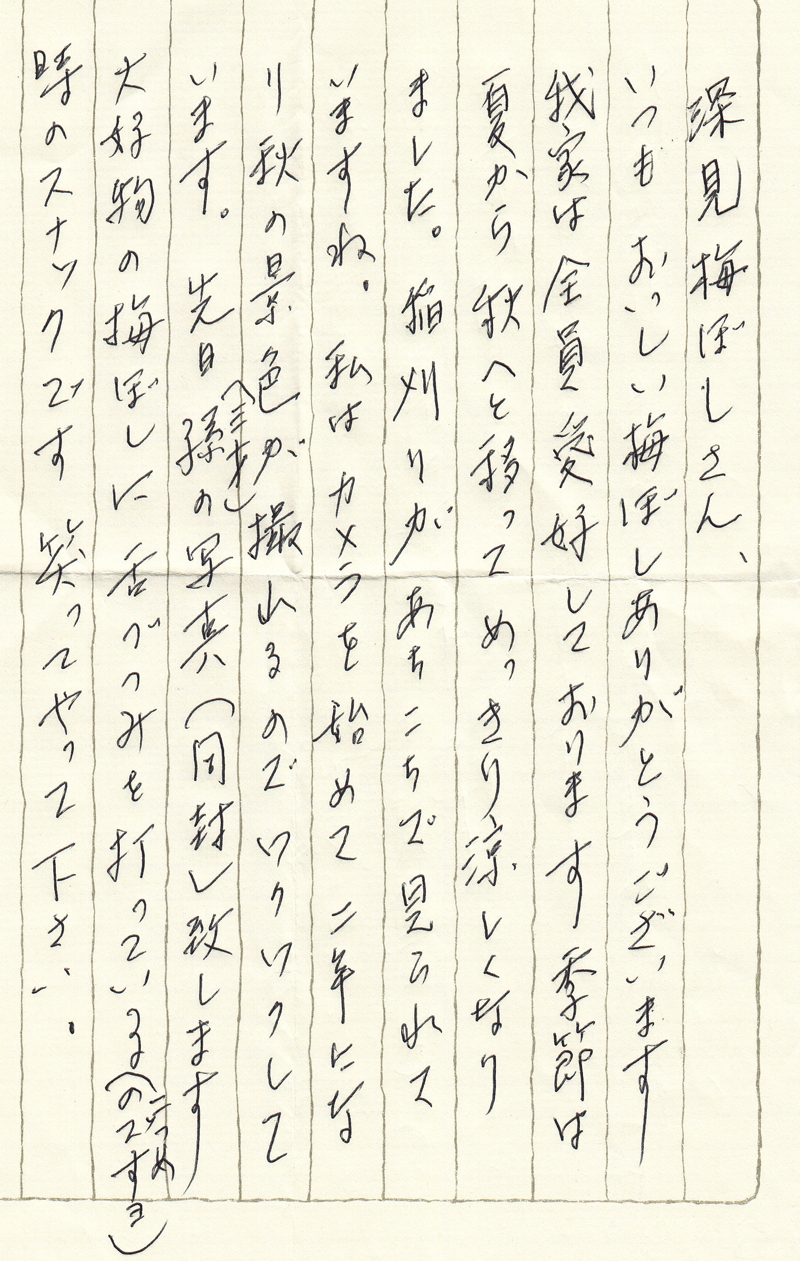 深見梅ぼしさん、
いつも おいしい梅ぼしありがとうございます
我家は全員愛好しております 季節は
夏から秋へと移ってめっきり涼しくなり
ました。稲刈りがあちこちで見られて
いますね。私はカメラを始めて二年にな
り秋の景色が撮れるのでワクワクして
います。先日 孫(三才)の写真(同封し致します
大好物の梅ぼしに舌づつみを打っている(のですヨ)
時のスナックです 笑ってやって下さい。